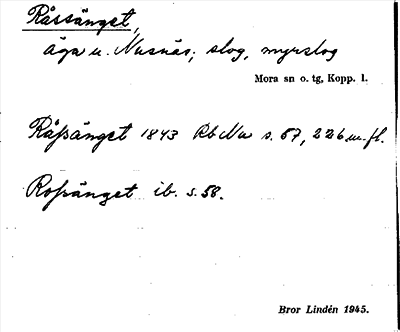 Råssänget,
äga u. Nusnäs; slog, myrslog
Mora sn o. tg, Kopp. l.
Råssänget 1843 Rb Nu s. 57, 226 m. fl.
Rossänget ib. s. 58.
Bror Lindén 1945.